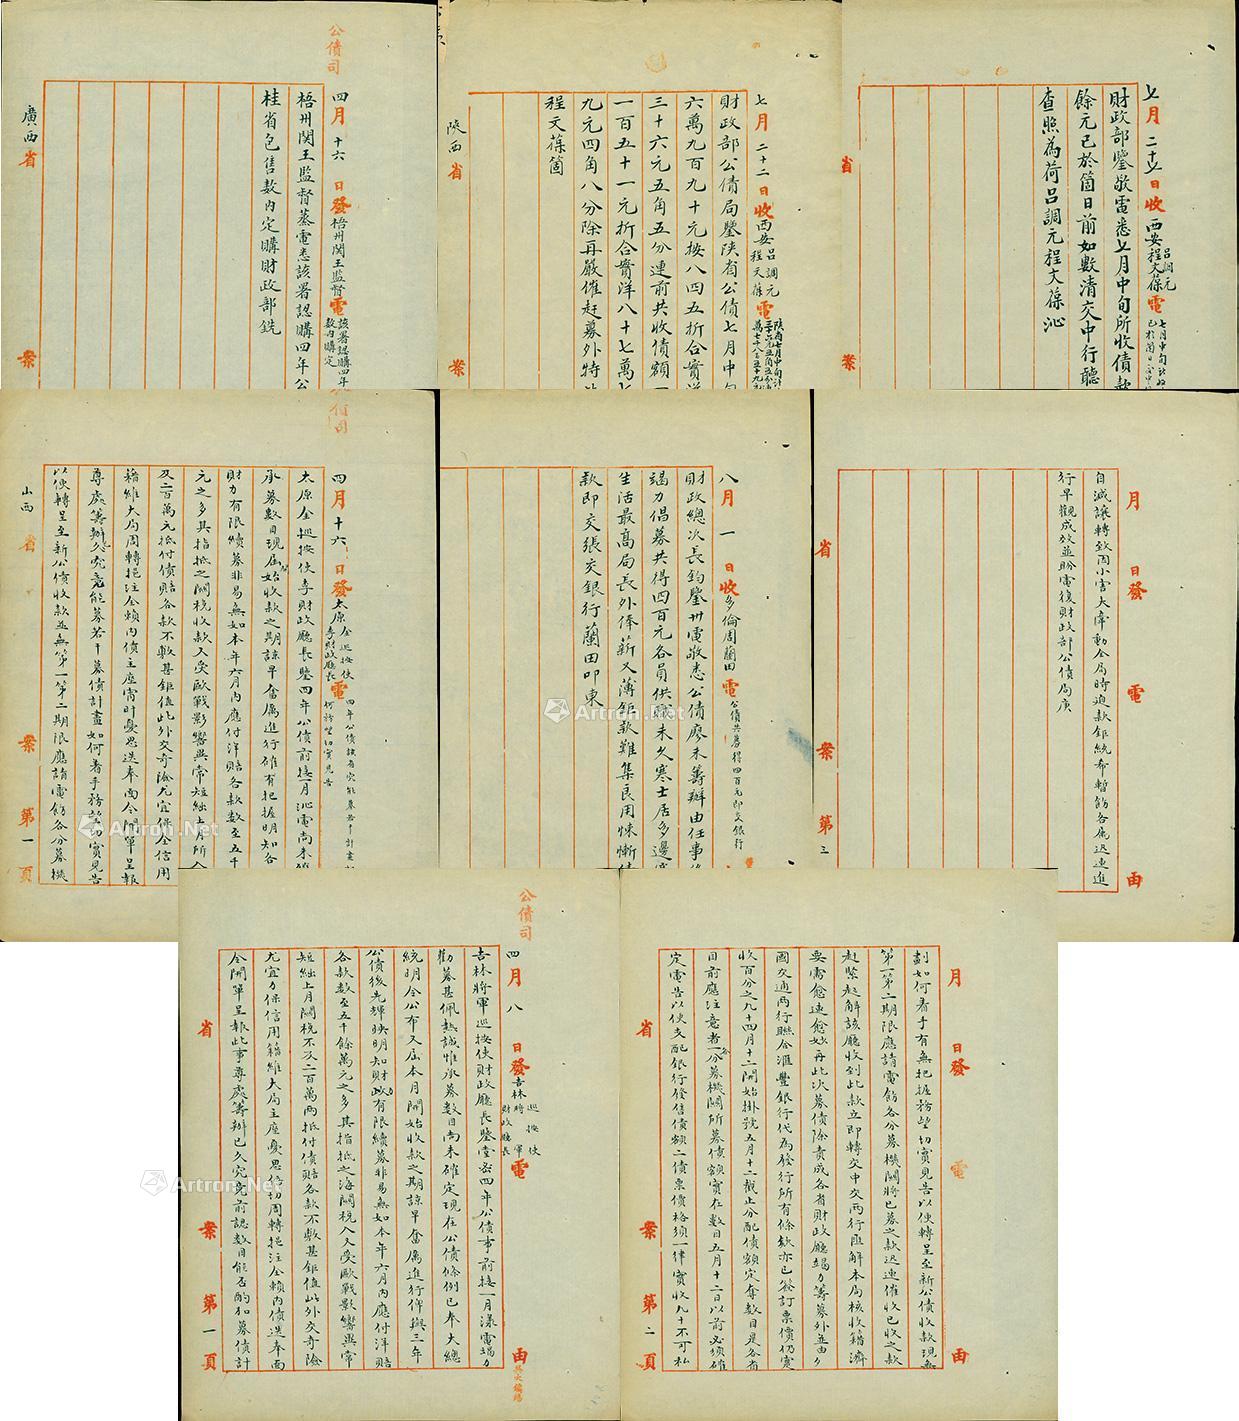 公債司
四月十六日發梧州関王監督電
該署認購四年
數內購定
梧州関王監督蒸電悉該署認購四年公
桂省包售數內定購財政部銑
廣西省
案
七月二十二日收西安呂調元程文葆電
財政部公債局鑒陕省公債七月中旬
六萬九百九十元按八四五折合實洋
三十六元五角五分連前共收債額一
一百五十一元折合實洋八十七萬七
九元四角八分除再嚴催赶募外特此
程文葆箇
陕西省
案
七月二十七日收西安呂調元程文葆電
財政部鑒敬電悉七月中旬所收債款
餘元已於箇日前如數清交中行聽
查照為荷呂調元程文葆沁
省
案
四月十六日發太原金巡按使李財政廳長電
太原金巡按使李財政廳長鑒四年公債前接一月沁電尚未確
承募數目現屆始收款之期諒早奮厲進行確有把握明知各
財力有限續募非易無如本年六月內應付洋賠各款數至五千
元之多其指抵之關稅收款入受歐戰影響異常短絀上月所入
及二百萬元抵付債賠各款不敷甚鉅值此外交奇險尤宜保全信用
藉維大局周轉挹注全賴內債主座宵旰憂思迭奉面令開單呈報
尊處籌辦已久究竟能募若干募債計畫如何着手務望切實見告
以便轉呈至新公債收款並無第一第二期限應請電飭各分募機
山西省
案
第一頁
八月一日收多倫周蘭田電
公債共募得四百元即交銀行
財政總次長鈞鑒卅電敬悉公債廖未籌辦由任事後
竭力倡募共得四百元各員供職未久寒士居多邊寒
生活最高局長外俸薪又薄鉅款難集良用悚慚
款即交張交銀行蘭田叩東
月日發電由
自減讓轉致因小害大牽動全局時迫款鉅統希暫飭各屬迅速進
行早觀成效並盼電復財政部公債局庚
省
案
第三
公債司
四月八日發吉林將軍巡按使財政廳長電由
吉林將軍巡按使財政廳長鑒堂密四年公債事前接一月漾電竭力
勸募甚佩熱誠惟承募數目尚未確定現在公債條例已奉大總
統明令公布又屆本月開始收款之期諒早奮厲進行俾與三年
公債後先輝映明知財政力有限續募非易無如本年六月內應付洋賠
各款數至五千餘萬元之多其指抵之海關稅入又受歐戰影響異常
短絀上月關稅不及二百萬兩抵付債賠各款不敷甚鉅值此外交奇險
尤宜力保信用藉維大局主座憂思焦切周轉挹注全賴內債迭奉面
令開單呈報此事尊處籌辦已久究竟前認數目能否酌加募債計
省
案
第一頁
月日發電由
劃如何着手有無把握務望切實見告以便轉呈至新公債收款現無
第一第二期限應請電飭各分募機關將已募之款迅速催收已收之款
赶緊起解該廳收到此款立即轉交中交兩行匯解本局核收藉濟
要需愈速愈妙再此次募債除責成各省財政廳竭力籌募外並由
國交通兩行聯合滙豐銀行代為發行所有條款亦已簽訂票價仍實
收百分之九十四月十二開始掛號五月十二截止分配債額定奪數目是各省
目前應注意者一各分募機關所募債額實在數目五月十二日以前必須確
定電告以便支配銀行發售債額二債票價格須一律實收九十不可私
省
案
第二頁
Artron.Net